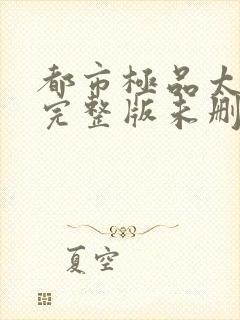 都市極品太
完整版未删
夏空